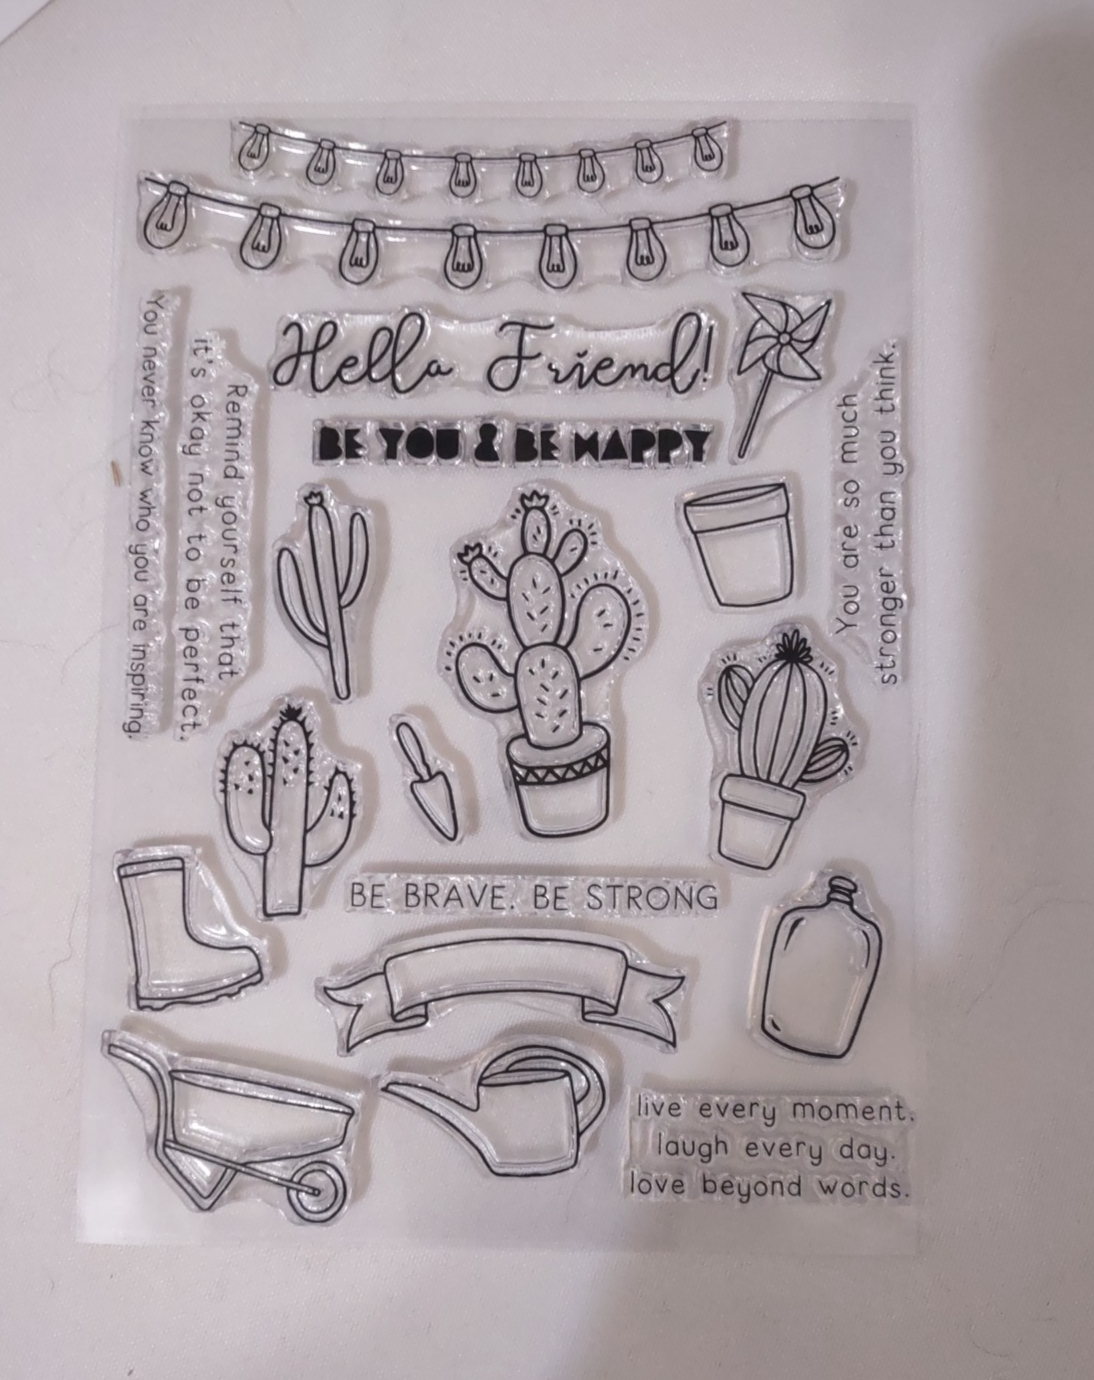 Hella Friend!
BE YOU & BE HAPPY
You never know who you are inspiring.
Remind yourself that
it's okay not to be perfect.
You are so much
stronger than you think.
BE BRAVE. BE STRONG
live every moment.
laugh every day.
love beyond words.